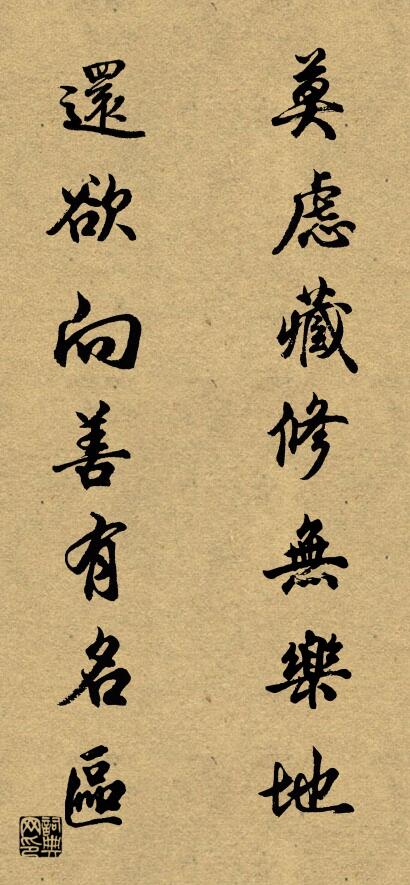 莫慮藏修無樂地
還欲向善有名區
詞典网印